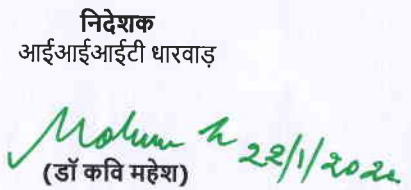 निदेशक
आईआईआईटी धारवाड़
22/1/202
(डॉ कवि महेश)